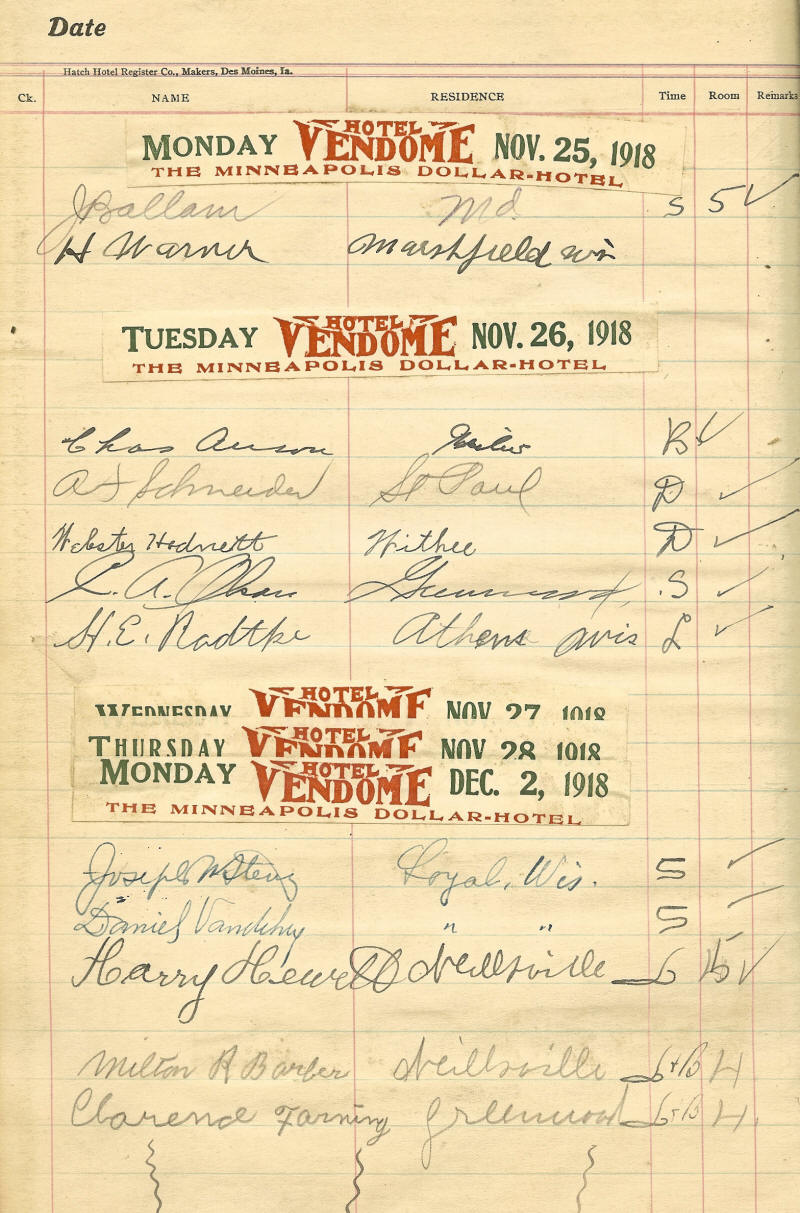 Date
Hatch Hotel Register Co., Makers, Des Moines, Ia.
Ck. NAME RESIDENCE Time Room Remarks
MONDAY HOTEL VENDOME NOV. 25, 1918
THE MINNEAPOLIS DOLLAR-HOTEL
J Ballam Md. S 5 ✓
H Warner Marshfield Wis
TUESDAY HOTEL VENDOME NOV. 26, 1918
THE MINNEAPOLIS DOLLAR-HOTEL
Chas B ✓
Schneider St Paul D ✓
Webster Hodnett Withee D ✓
A. Greenwood S ✓
H. E. Radtke Athens Wis L ✓
WEDNESDAY HOTEL VENDOME NOV 27 1918
THURSDAY HOTEL VENDOME NOV 28 1918
MONDAY HOTEL VENDOME DEC. 2, 1918
THE MINNEAPOLIS DOLLAR-HOTEL
Joseph Loyal, Wis. S ✓
Daniel " " S ✓
Harry Hewett Neillsville ✓
Milton R Barber Neillsville 4
Clarence Greenwood 4